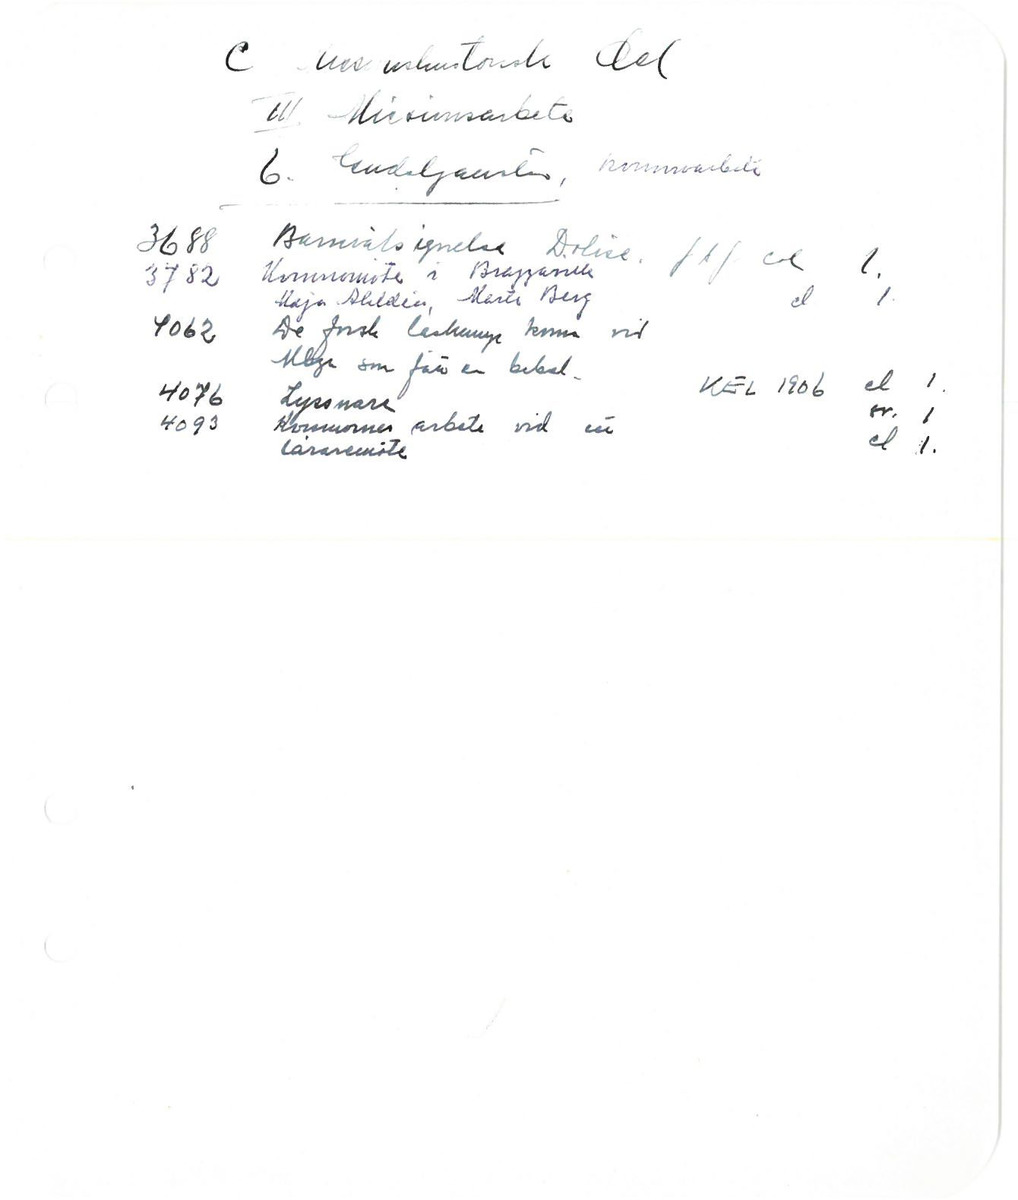 C Missionshistorisk Del
III. Missionsarbete
6. Gudstjänster, Kvinnoarbete
3688 Barnvälsignelse Dolisie. col 1.
3782 Kvinnomöte i Brazzaville
Maja Ahldén, Märta Berg cl 1.
4062 De första läskunniga kvinn vid
som får en bibel.
4076 Lyssnare KEL 1906 cl 1.
4093 Kvinnornas arbete vid ett sv. 1
läraremöte cl 1.